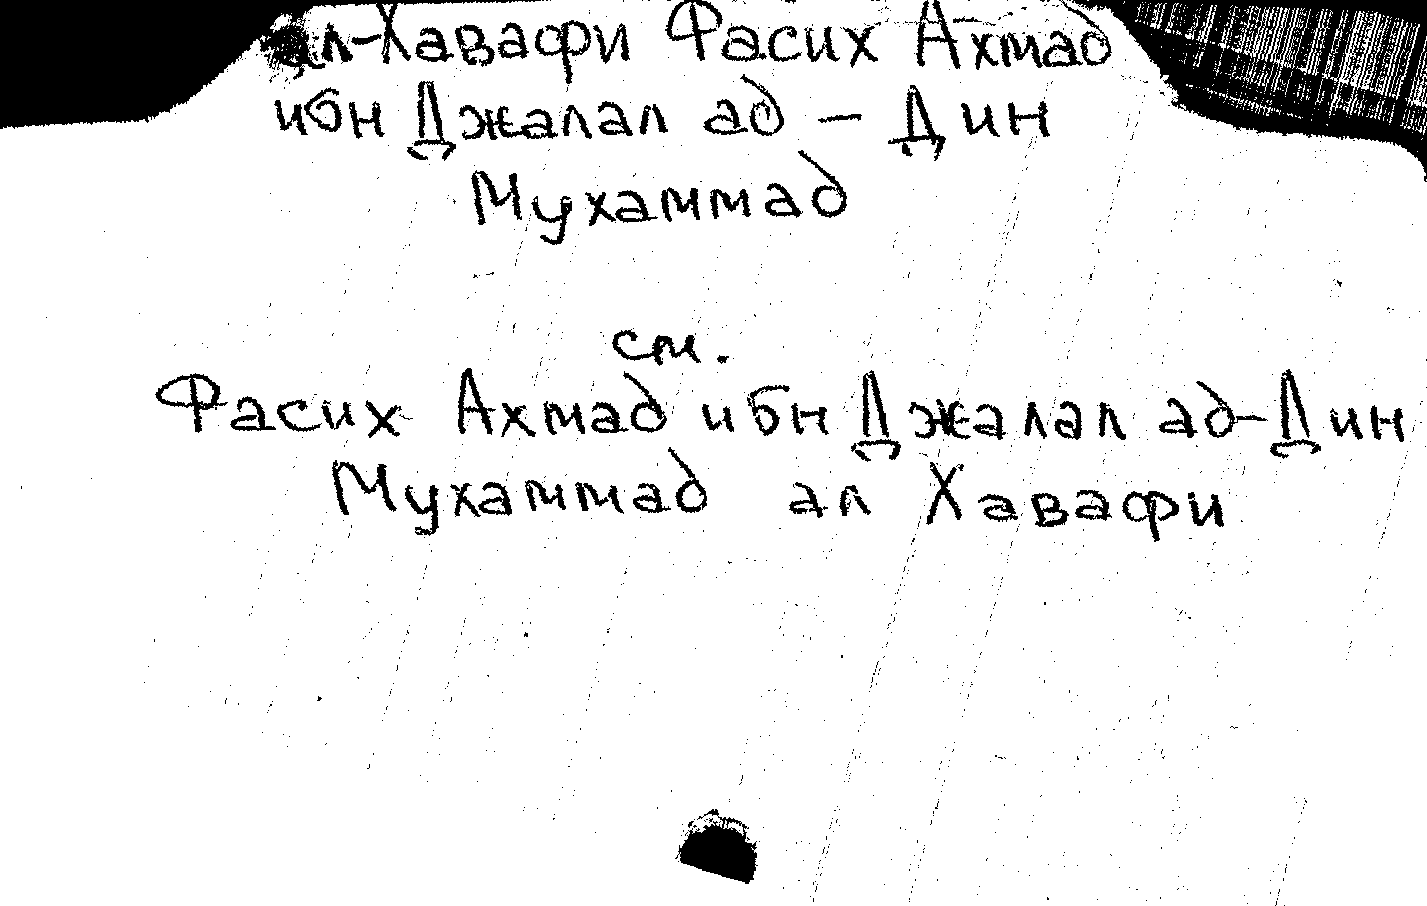 ал-Хавафи Фасих Ахмад
ибн Джалал ад - Дин
Мухаммад
см.
Фасих Ахмад ибн Джалал ад-Дин
Мухаммад ал Хавафи